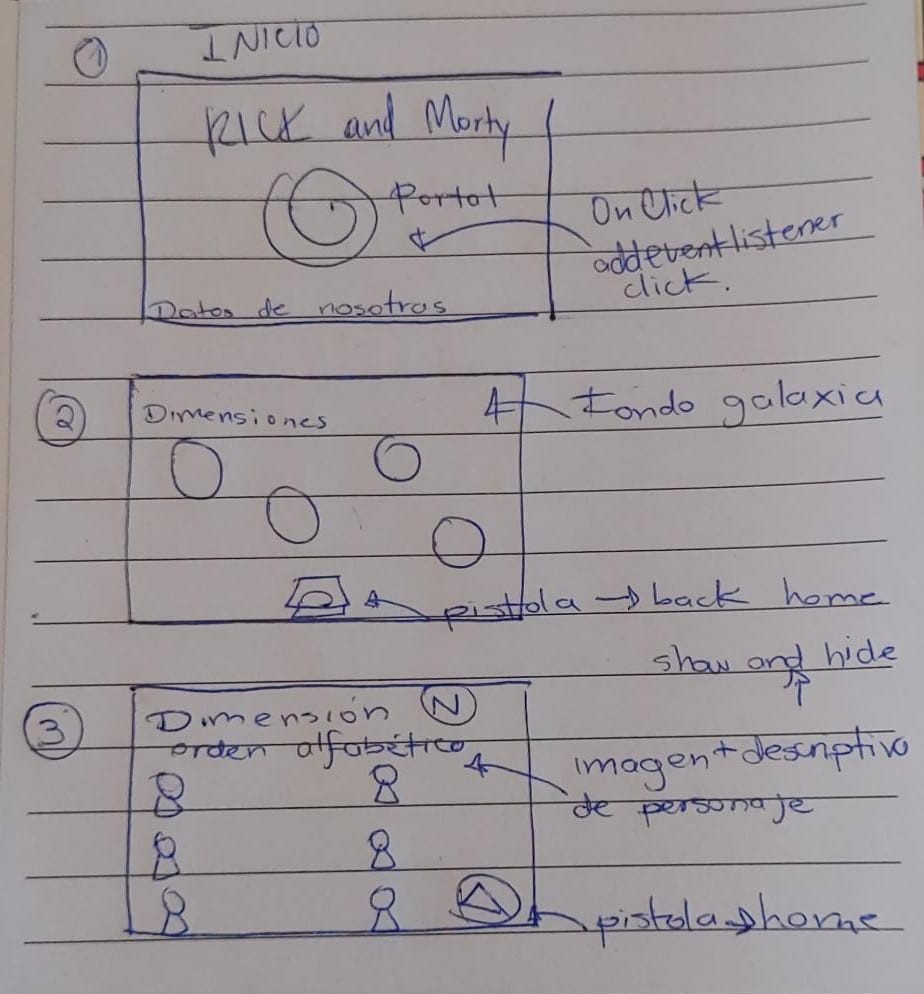 1 INICIO
RICK and Morty
Portal
On Click
addeventlistener
click.
Datos de nosotras
2 Dimensiones
Fondo galaxia
pistola → back home
show and hide
3 Dimensión N
orden alfabético
imagen + descriptivo
de personaje
pistola → home